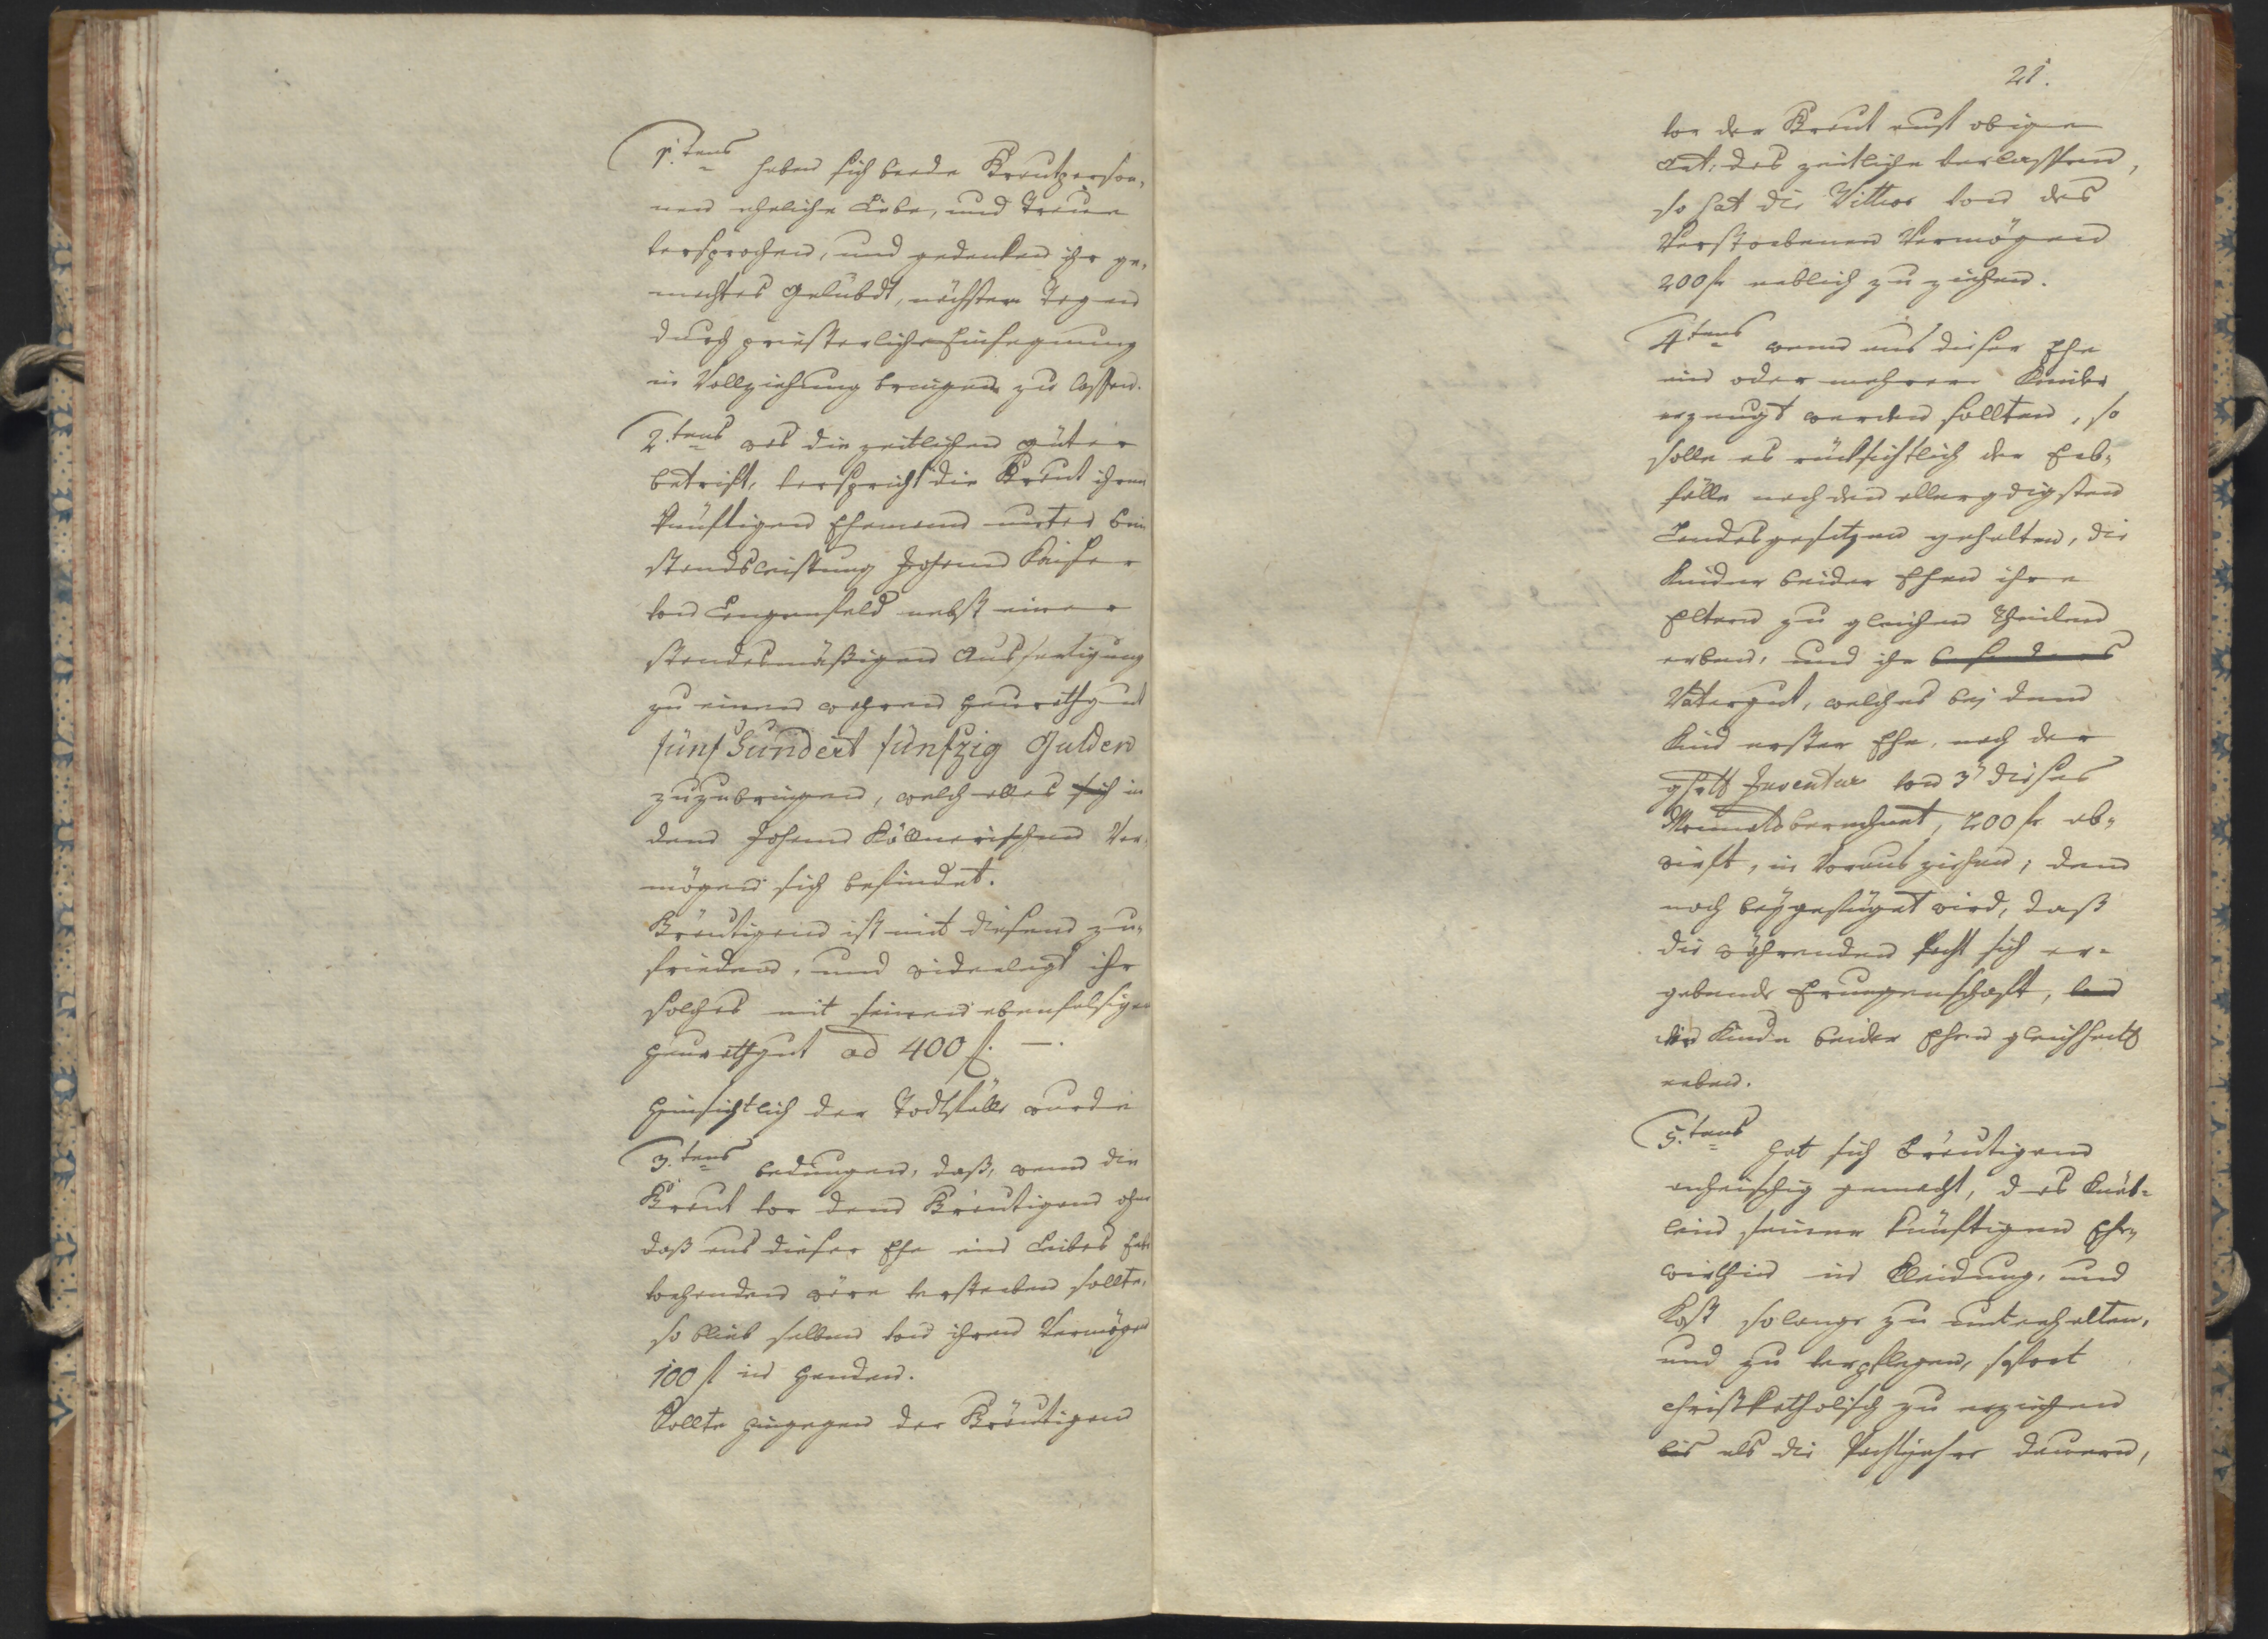 1.tens haben sich beede Brautperso-
nen eheliche Liebe, und Treue
versprochen, und gedenken ihr ge-
machtes Gelübdt, nächster Tagen
durch priesterliche Einsegnung
in Vollziehung bringen zu lassen.
2.tens was die zeitlichen Güter
betrift, verspricht die Braut ihrem
künftigen Ehemann unter Bei
standsleistung Johann Kaiser
von Lengenfeld nebst einer
standesmäßigen Ausfertigung
zu einem wahren Heurathgut
fünf Hundert fünfzig Gulden
zuzubringen, welch alles sich in
dem Johann Köllnerischen Ver-
mögen sich befindet.
Bräutigam ist mit diesem zu-
frieden, und widerlegt ihr
solches mit seinem ebenfalsigen
Heurathgut ad 400 f. —.
Hinsichtlich der Todtfälle wurde
3.tens bedungen, daß, wenn die
Braut vor dem Bräutigam ohne
daß aus dieser Ehe ein Leibes Erb
vorhanden wäre versterben sollte,
so bleibt selbem von ihrem Vermögen
100 fl in Handen.
Sollte hingegen der Bräutigam
21.
vor der Braut auf obige
Art, das zeitliche verlassen,
so hat die Wittwe von des
Verstorbenen Vermögen
200 fl erblich zu ziehen.
4tens wenn aus dieser Ehe
ein oder mehrere Kinder
erzeugt werden sollten, so
solle es rücksichtlich der Erb-
fälle nach den allergdigsten
Landesgesetzen gehalten, die
Kinder beider Ehen ihre
Eltern zu gleichen Theilen
erben, und ihr besonderes
Vatergut, welches bej dem
Kind erster Ehe, nach der
Inventur von 3t dieses
Monats berechnet, 200 fl ab-
wirft, in Voraus ziehen, dem
noch beygefüget wird, daß
die währenden Pacht sich er-
gebende Errungenschaft, von
den Kinder beider Ehen gleichheitl
erben.
5.tens hat sich Bräutigam
anheischig gemacht, das Knäb-
lein seiner künftigen Ehe-
wirthin in Kleidung, und
Kost solange zu unterhalten,
und zu verpflegen, sofort
christkatholisch zu erziehen
bis als die Pachtjahre dauern,